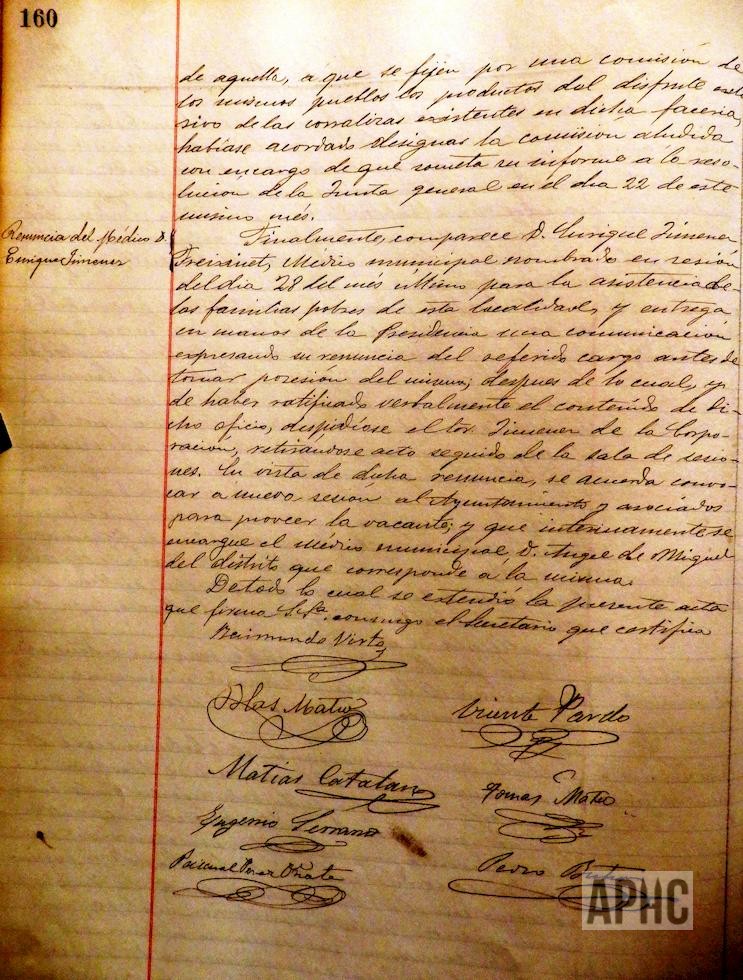 160
de aquella, á que se fijen por una comisión de
los mismos pueblos los productos del disfrute exclu
sivo de las corralizas existentes en dicha facería,
habíase acordado designar la comisión aludida
con encargo de que someta su informe á la reso-
lución de la Junta general en el dia 22 de este
mismo més.
Renuncia del Médico D.
Enrique Jimenez
Finalmente, comparece D. Enrique Jimenez
Freixinet, Médico municipal nombrado en sesión
del dia 28 del més último para la asistencia de
las familias pobres de esta localidad, y entrega
en manos de la Presidencia una comunicación
expresando su renuncia del referido cargo antes de
tomar posesión del mismo; despues de lo cual, y
de haber ratificado verbalmente el contenido de di-
cho oficio, despidióse el Sor. Jimenez de la Corpo-
ración, retirándose acto seguido de la sala de sesio-
nes. En vista de dicha renuncia, se acuerda convo-
car a nueva sesión al Ayuntamiento y asociados
para proveer la vacante; y que interinamente se
encargue el Médico municipal, D. Angel de Miguel
del distrito que corresponde á la misma.
De todo lo cual se extendió la presente acta
que firma S.Sª. conmigo el Secretario que certifico
Raimundo Virto
Blas Mateo
Vicente Pardo
Matias Catalan
Tomas Mateo
Eugenio Serrano
Pascual Perez Oñate
Pedro
APHC